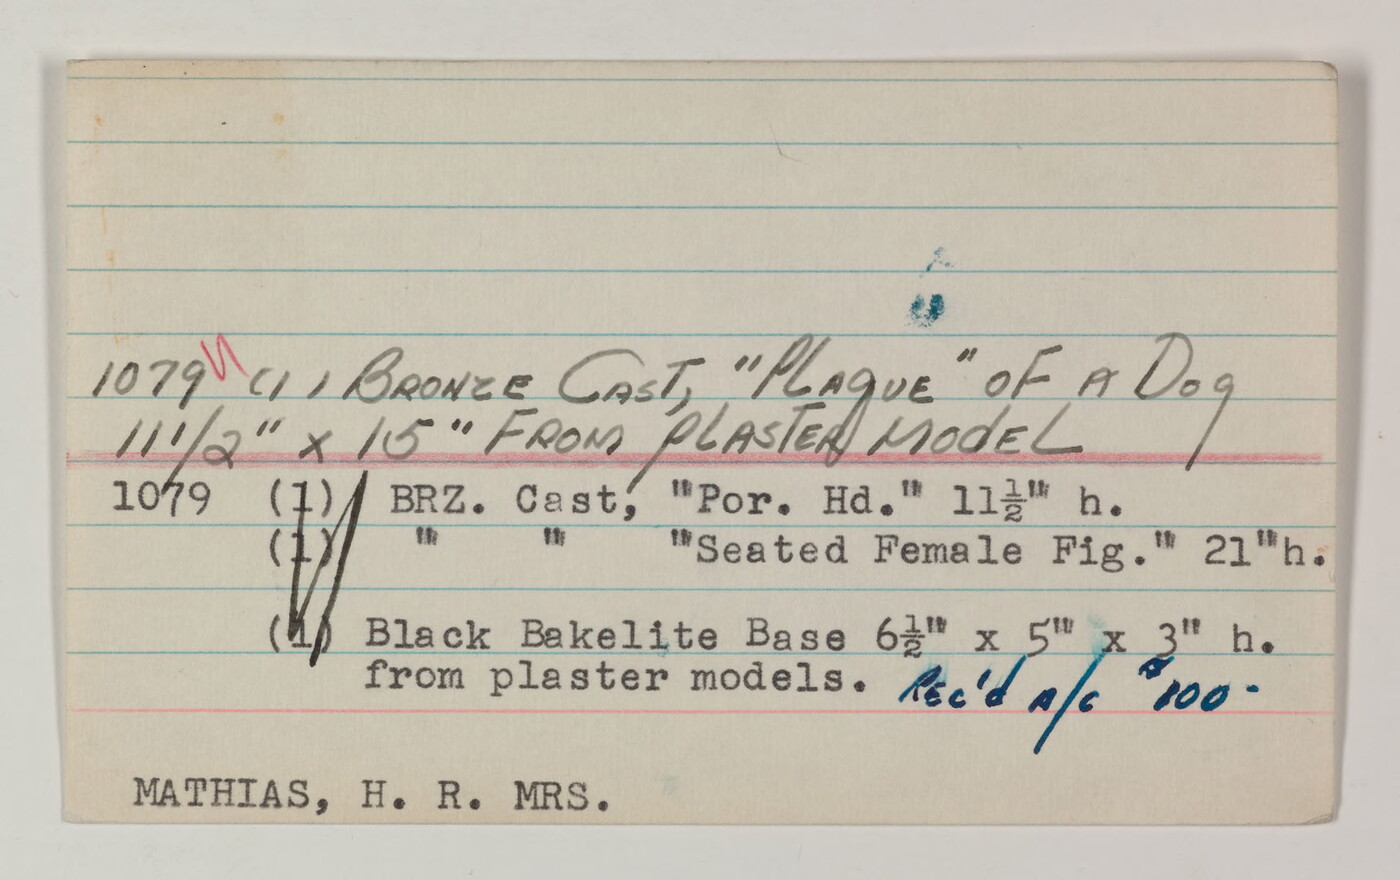 1079 (1) BRONZE CAST, "PLAQUE" OF A DOG
11 1/2" x 15" FROM PLASTER MODEL
1079 (1) BRZ. Cast, "Por. Hd." 11½" h.
(1) " " "Seated Female Fig." 21"h.
(1) Black Bakelite Base 6½" x 5" x 3" h.
from plaster models. REC'd A/C $100-
MATHIAS, H. R. MRS.